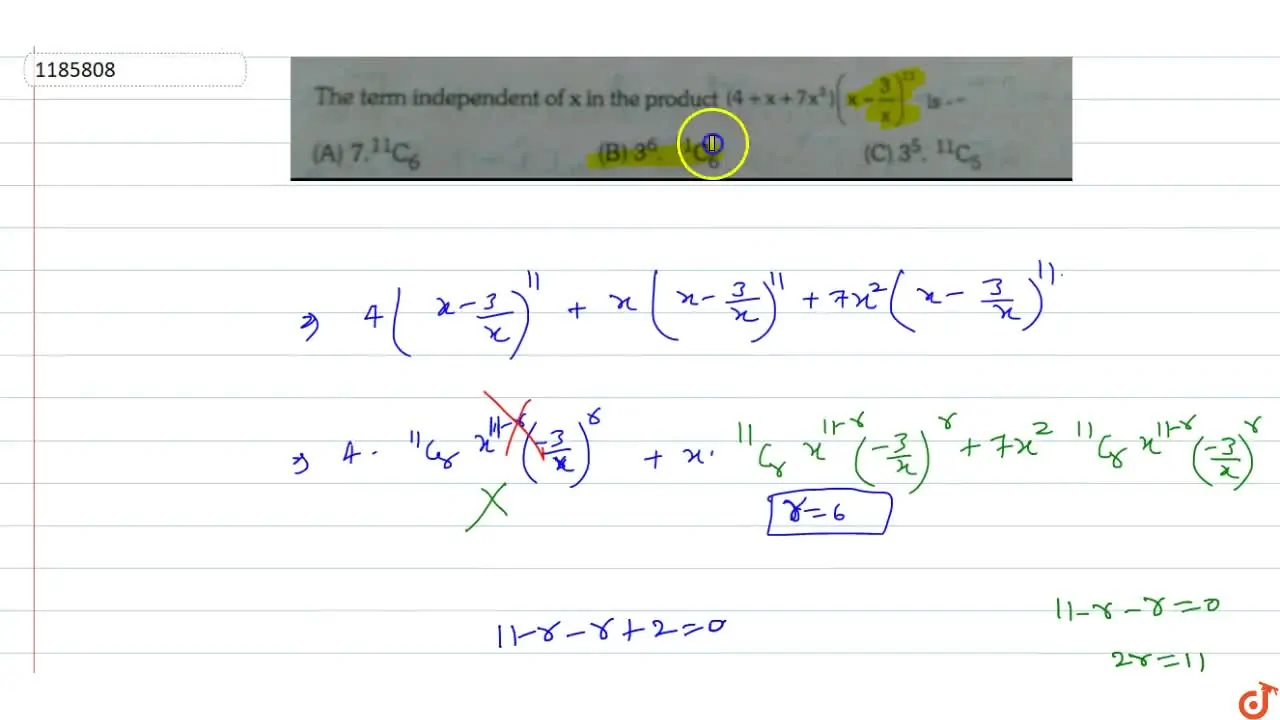 1185808
The term independent of x in the product (4 + x + 7x²)(x − 3/x)¹¹ is --
(A) 7.¹¹C₆ (B) 3⁶. ¹C₆ (C) 3⁵. ¹¹C₅
⇒ 4(x − 3/x)¹¹ + x(x − 3/x)¹¹ + 7x²(x − 3/x)¹¹.
⇒ 4 · ¹¹Cᵣ x¹¹⁻ʳ (−3/x)ʳ + x · ¹¹Cᵣ x¹¹⁻ʳ (−3/x)ʳ + 7x² ¹¹Cᵣ x¹¹⁻ʳ (−3/x)ʳ
r = 6
11 − r − r = 0
11 − r − r + 2 = 0
2r = 11